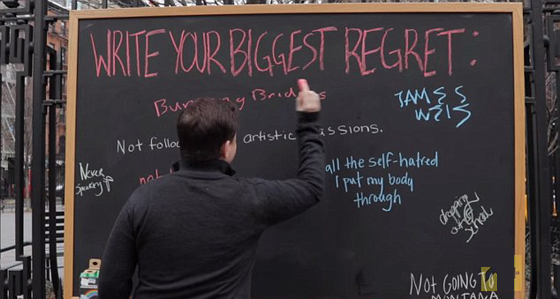 WRITE YOUR BIGGEST REGRET:
Burning Bridges
JAMES
WEIS
Not follo artistic passions.
Never
speaking up
not
all the self-hatred
I put my body
through
dropping
out of
school
NOT GOING TO
MONTANA